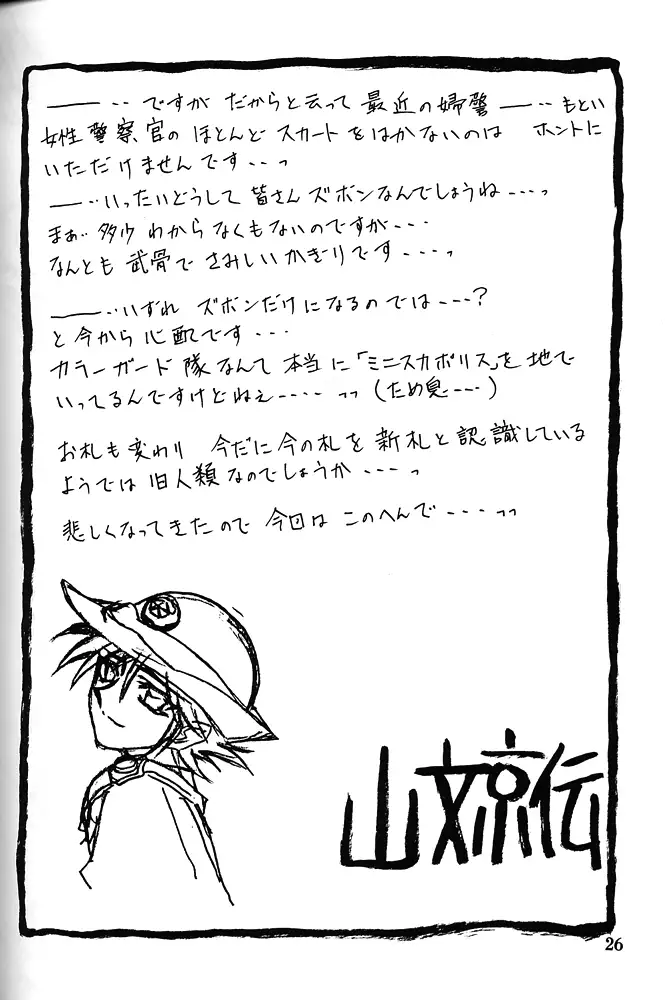 ───‥ ですが だからと云って 最近の婦警 ──‥ もとい
女性警察官の ほとんど スカートをはかないのは ホントに
いただけませんです‥‥っ
──‥いったいどうして 皆さん ズボンなんでしょうね‥‥っ
まぁ‥ 多少 わからなくもないのですが‥‥
なんとも 武骨で さみしいかぎりです‥‥っ
───‥いずれ ズボンだけになるのでは‥‥?
と今から 心配です‥‥
カラーガード 隊なんて 本当に「ミニスカポリス」を 地で
いってるんですけどねぇ‥‥‥っっ (ため息‥‥)
お札も変わり 今だに今の札を 新札と認識している
ようでは 旧人類なのでしょうか‥‥っ
悲しくなってきたので 今回は このへんで‥‥っっ
山文京伝
26